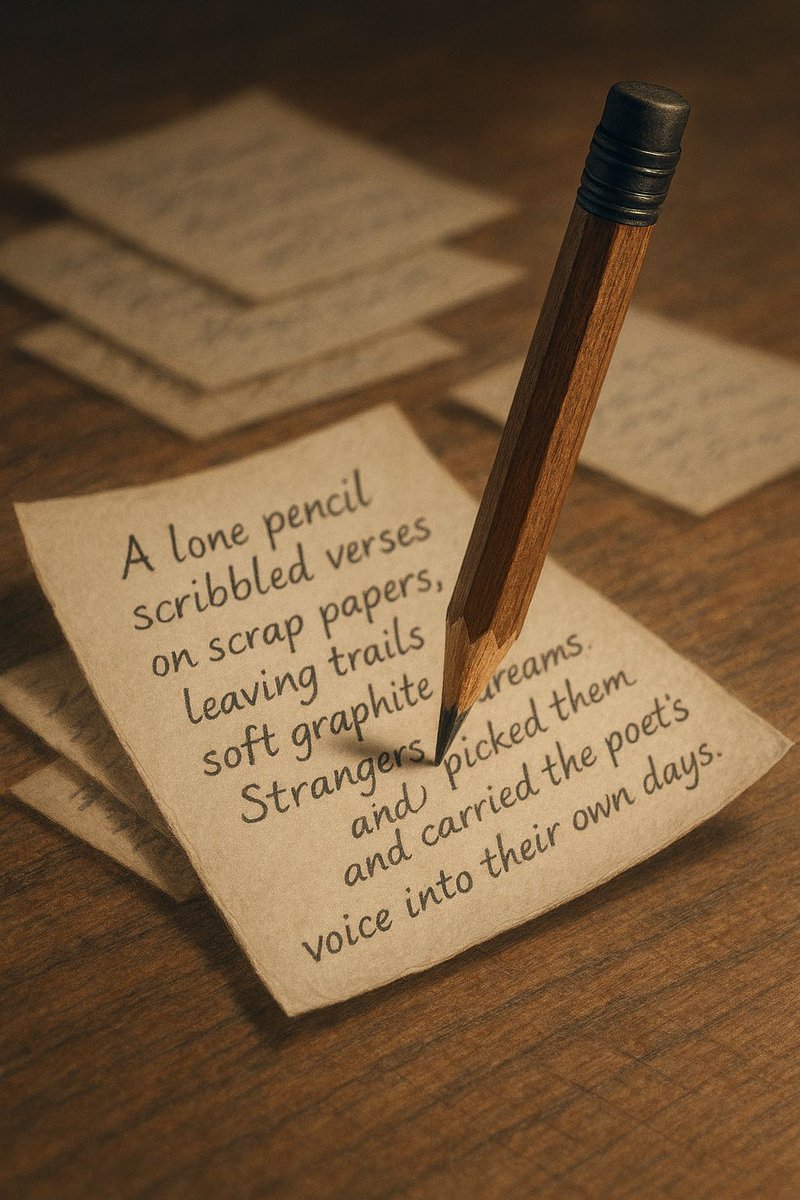 A lone pencil
scribbled verses
on scrap papers,
leaving trails
soft graphite dreams.
Strangers picked them
and
and carried the poet's
voice into their own days.